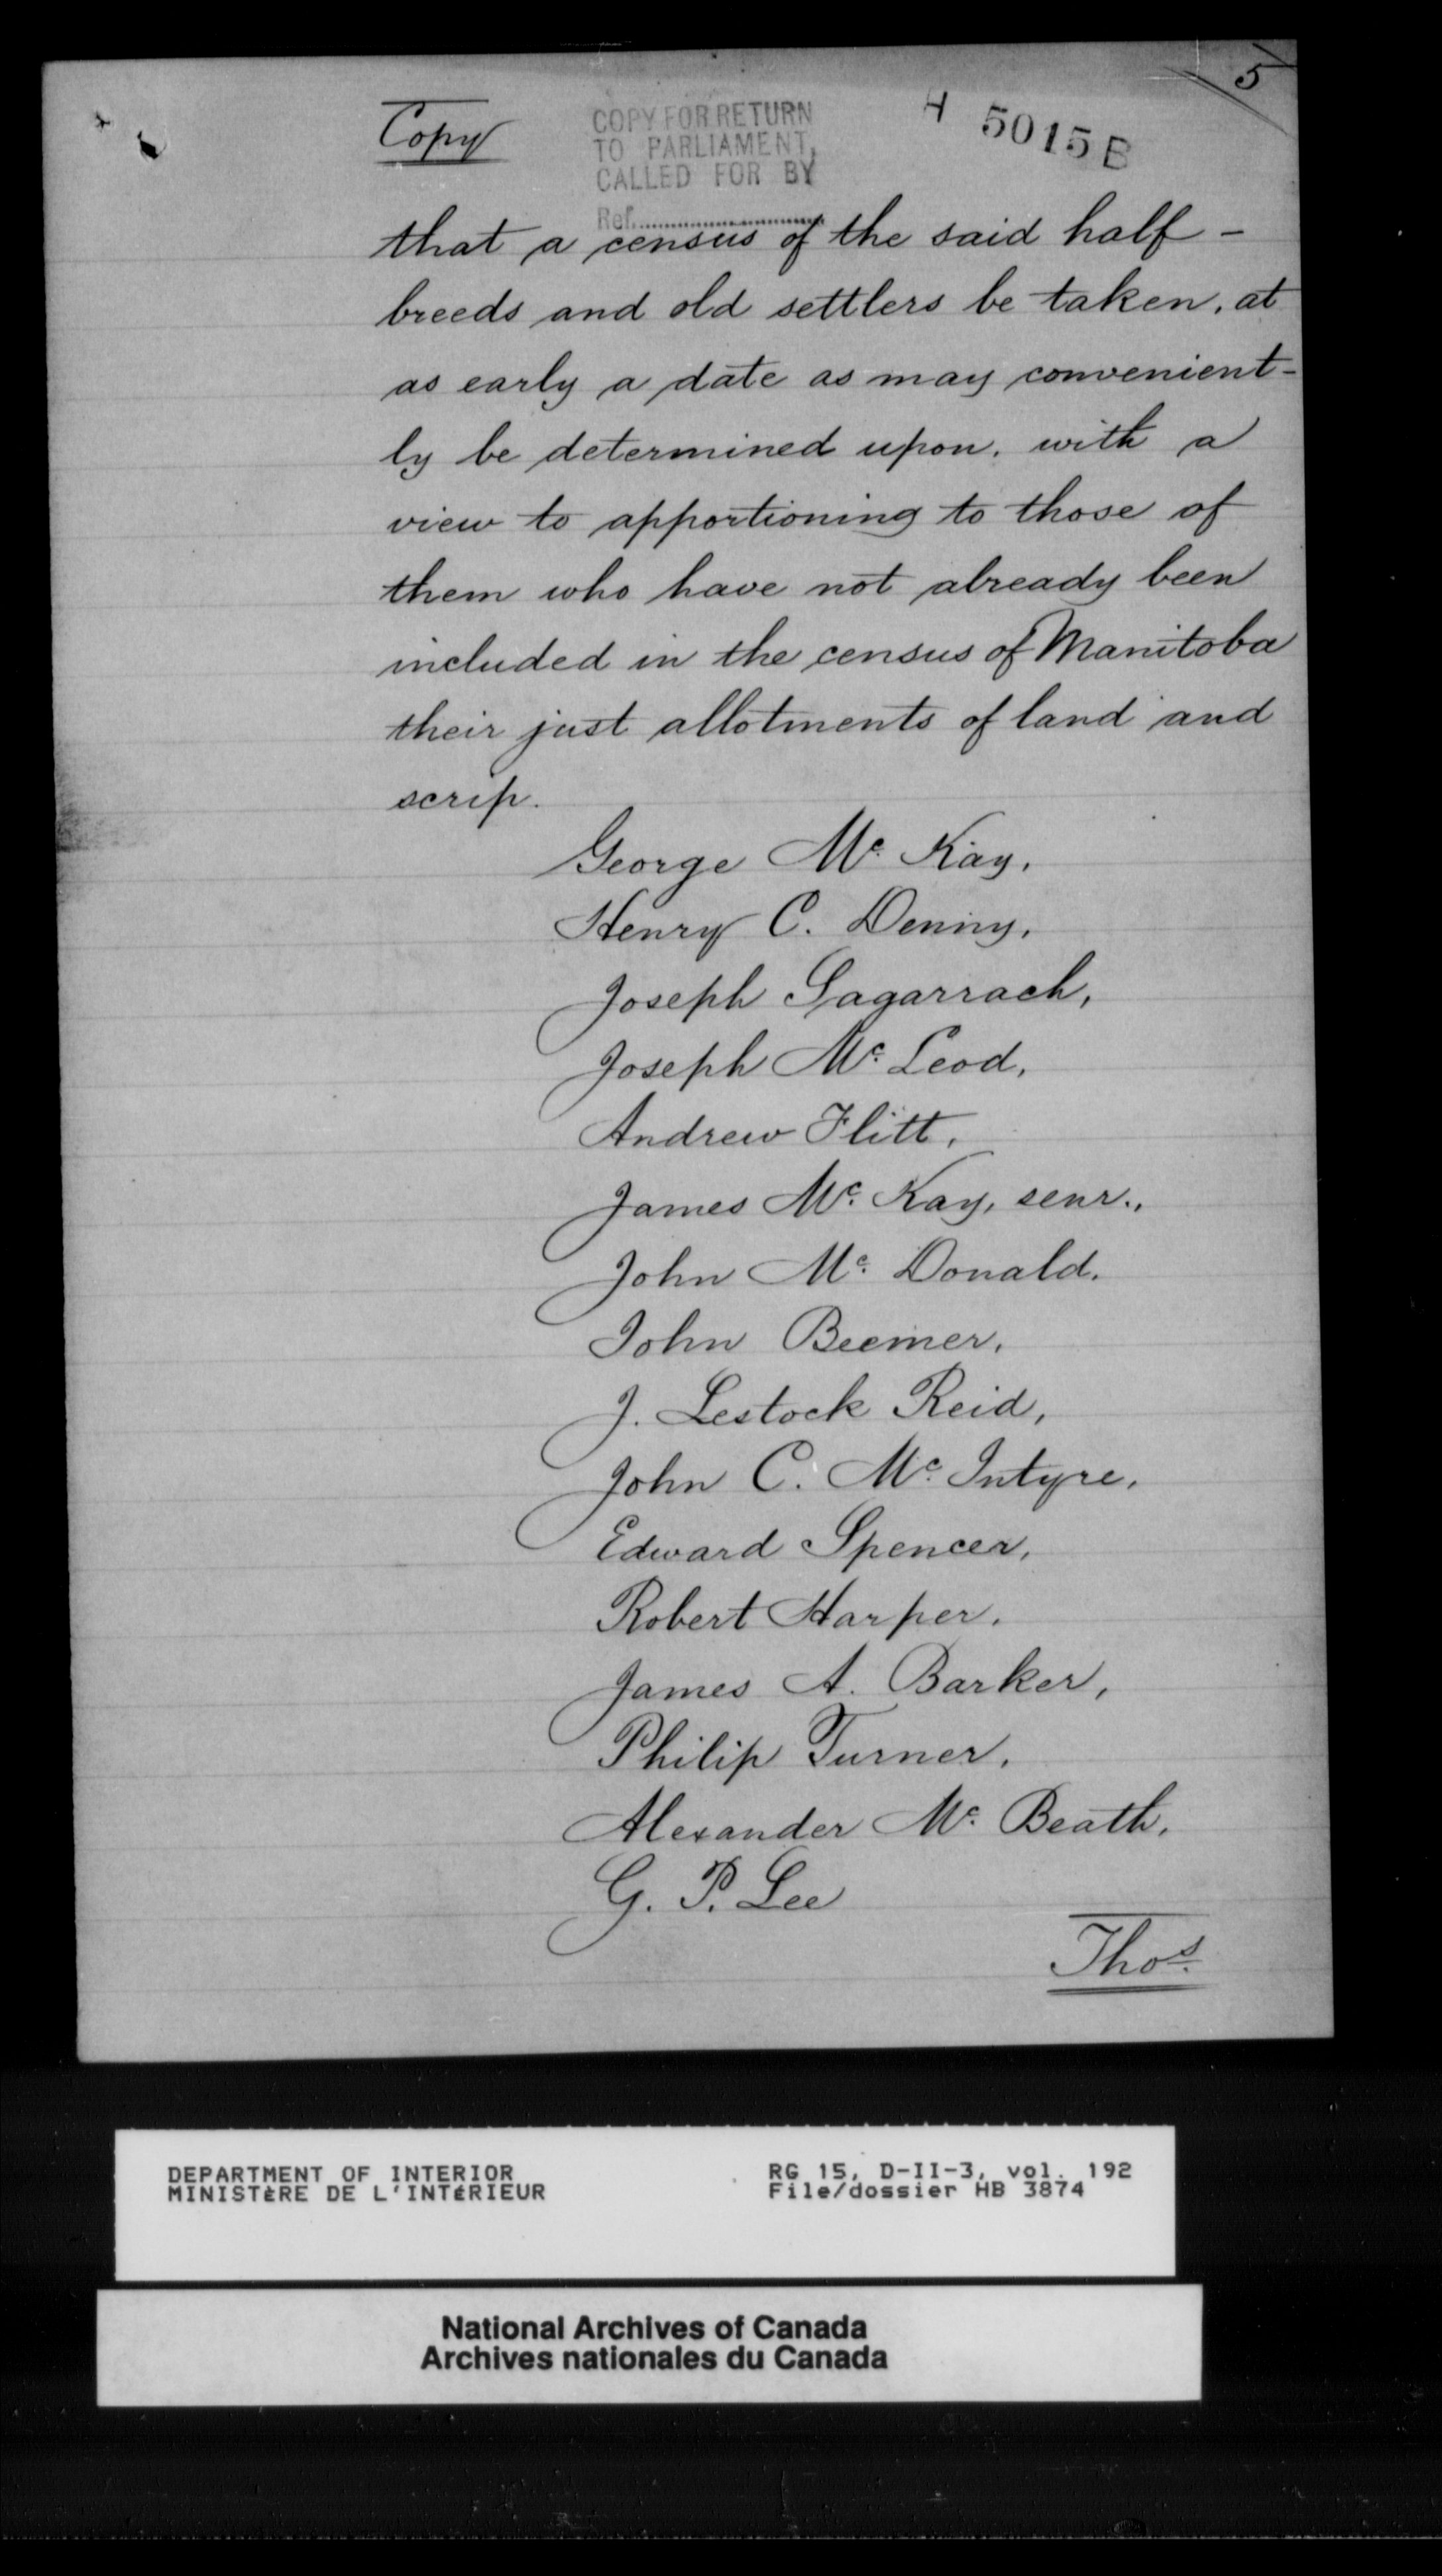 5
Copy
COPY FOR RETURN
TO PARLIAMENT,
CALLED FOR BY
Ref.
H 5015 B
that a census of the said half-
breeds and old settlers be taken, at
as early a date as may convenient-
ly be determined upon, with a
view to apportioning to those of
them who have not already been
included in the census of Manitoba
their just allotments of land and
scrip.
George Mc. Kay,
Henry C. Denny,
Joseph Gagarrach,
Joseph Mc. Leod,
Andrew Flitt,
James Mc. Kay, senr.,
John Mc. Donald,
John Beemer,
J. Lestock Reid,
John C. Mc. Intyre,
Edward Spencer,
Robert Harper,
James A. Barker,
Philip Turner,
Alexander Mc. Beath,
G. P. Lee
Thos.
DEPARTMENT OF INTERIOR
MINISTÈRE DE L'INTÉRIEUR
RG 15, D-II-3, vol. 192
File/dossier HB 3874
National Archives of Canada
Archives nationales du Canada